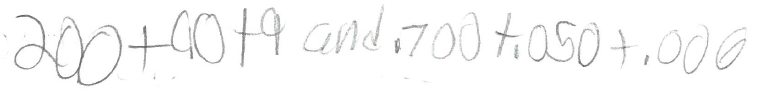 200+90+9 and .700+.050+.006